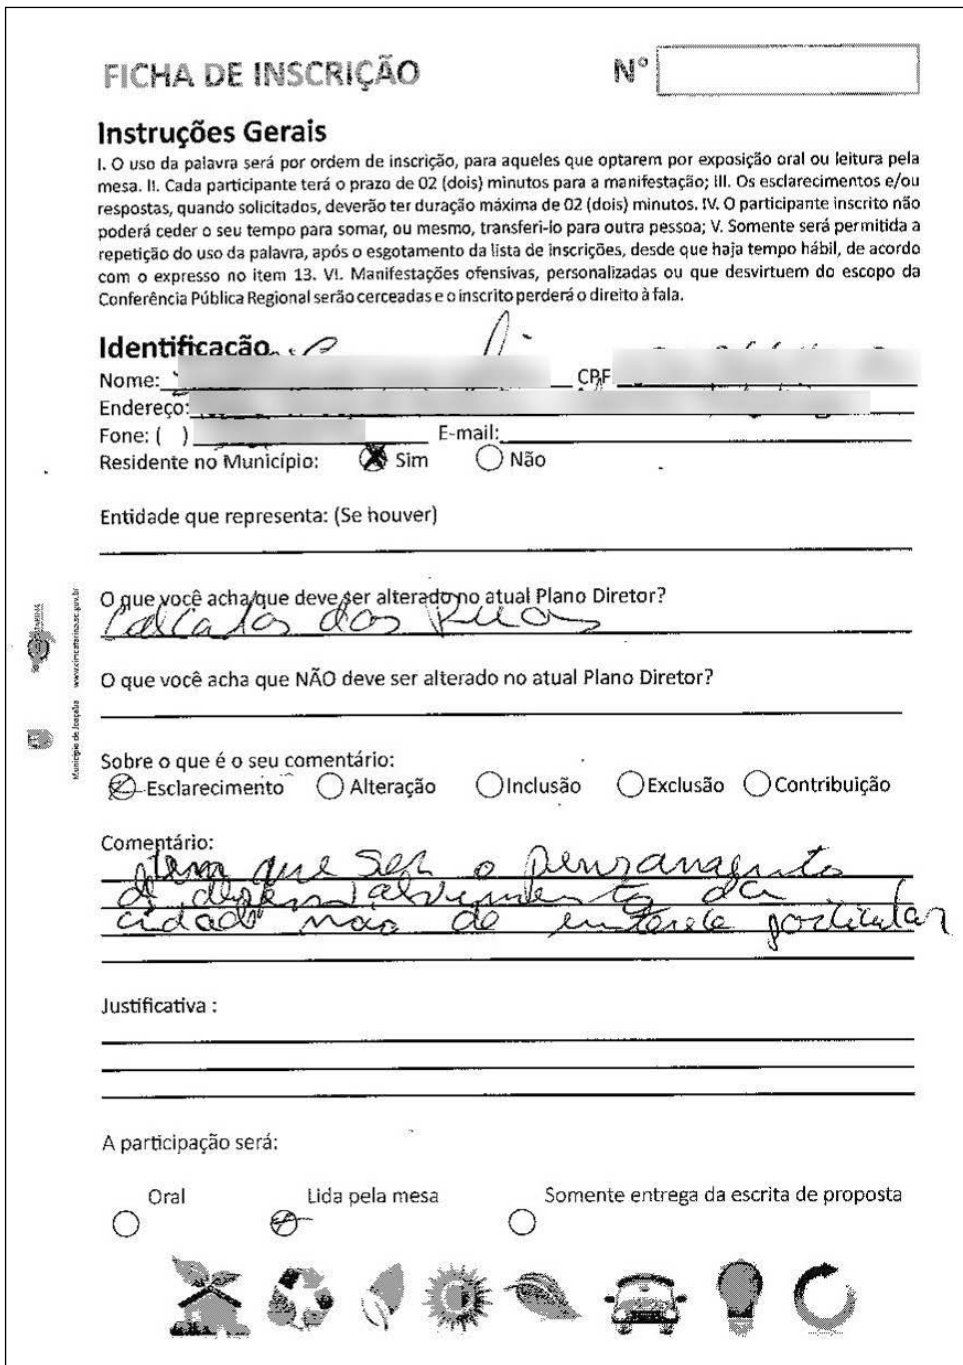 FICHA DE INSCRIÇÃO
Nº
Instruções Gerais
I. O uso da palavra será por ordem de inscrição, para aqueles que optarem por exposição oral ou leitura pela
mesa. II. Cada participante terá o prazo de 02 (dois) minutos para a manifestação; III. Os esclarecimentos e/ou
respostas, quando solicitados, deverão ter duração máxima de 02 (dois) minutos. IV. O participante inscrito não
poderá ceder o seu tempo para somar, ou mesmo, transferi-lo para outra pessoa; V. Somente será permitida a
repetição do uso da palavra, após o esgotamento da lista de inscrições, desde que haja tempo hábil, de acordo
com o expresso no item 13. VI. Manifestações ofensivas, personalizadas ou que desvirtuem do escopo da
Conferência Pública Regional serão cerceadas e o inscrito perderá o direito à fala.
Identificação
Nome: CPF
Endereço:
Fone: ( ) E-mail:
Residente no Município: Sim Não
Entidade que representa: (Se houver)
O que você acha que deve ser alterado no atual Plano Diretor?
dos Ruas
O que você acha que NÃO deve ser alterado no atual Plano Diretor?
Sobre o que é o seu comentário:
Esclarecimento Alteração Inclusão Exclusão Contribuição
Comentário:
tem que ser o
da
cidade não de particular
Justificativa :
A participação será:
Oral Lida pela mesa Somente entrega da escrita de proposta
Município de Joaçaba www.cimcatarina.sc.gov.br